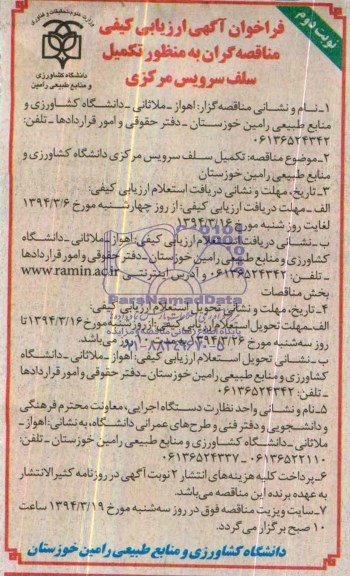 نوبت دوم
فراخوان آگهی ارزیابی کیفی
مناقصه‌گران به منظور تکمیل
سلف سرویس مرکزی
وزارت علوم، تحقیقات و فناوری
دانشگاه کشاورزی
و منابع طبیعی رامین
۱ـ نام و نشانی مناقصه‌گزار: اهواز ـ ملاثانی ـ دانشگاه کشاورزی و
منابع طبیعی رامین خوزستان ـ دفتر حقوقی و امور قراردادها ـ تلفن:
۰۶۱۳۶۵۲۴۳۴۲
۲ـ موضوع مناقصه: تکمیل سلف سرویس مرکزی دانشگاه کشاورزی و
منابع طبیعی رامین خوزستان
۳ـ تاریخ، مهلت و نشانی دریافت استعلام ارزیابی کیفی:
الف ـ مهلت دریافت ارزیابی کیفی: از روز چهارشنبه مورخ ۱۳۹۴/۳/۶
لغایت روز شنبه مورخ ۱۳۹۴/۳/۱۶
ب ـ نشانی دریافت استعلام ارزیابی کیفی: اهواز ـ ملاثانی ـ دانشگاه
کشاورزی و منابع طبیعی رامین خوزستان ـ دفتر حقوقی و امور قراردادها
ـ تلفن: ۰۶۱۳۶۵۲۴۳۴۲ و آدرس اینترنتی www.ramin.ac.ir
بخش مناقصات
۴ـ تاریخ، مهلت و نشانی تحویل استعلام ارزیابی کیفی:
الف ـ مهلت تحویل استعلام ارزیابی کیفی: از روز شنبه مورخ ۱۳۹۴/۳/۱۶ تا
روز سه‌شنبه مورخ ۱۳۹۴/۳/۲۶ به مدت ۱۰ روز می‌باشد.
ب ـ نشانی تحویل استعلام ارزیابی کیفی: اهواز ـ ملاثانی ـ دانشگاه
کشاورزی و منابع طبیعی رامین خوزستان ـ دفتر حقوقی و امور قراردادها
ـ تلفن: ۰۶۱۳۶۵۲۴۳۴۲
۵ـ نام و نشانی واحد نظارت دستگاه اجرایی، معاونت محترم فرهنگی
و دانشجویی و دفتر فنی و طرح‌های عمرانی دانشگاه، به نشانی: اهواز ـ
ملاثانی ـ دانشگاه کشاورزی و منابع طبیعی رامین خوزستان ـ تلفن:
۰۶۱۳۶۵۲۲۱۱۰ ـ ۰۶۱۳۶۵۲۴۳۳۷
۶ـ پرداخت کلیه هزینه‌های انتشار ۲ نوبت آگهی در روزنامه کثیرالانتشار
به عهده برنده این مناقصه می‌باشد.
۷ـ سایت ویزیت مناقصه فوق در روز سه‌شنبه مورخ ۱۳۹۴/۳/۱۹ ساعت
۱۰ صبح برگزار می‌گردد.
دانشگاه کشاورزی و منابع طبیعی رامین خوزستان
ParsNamadData
۰۲۱-۸۸۳۴۹۶۷۰-۵